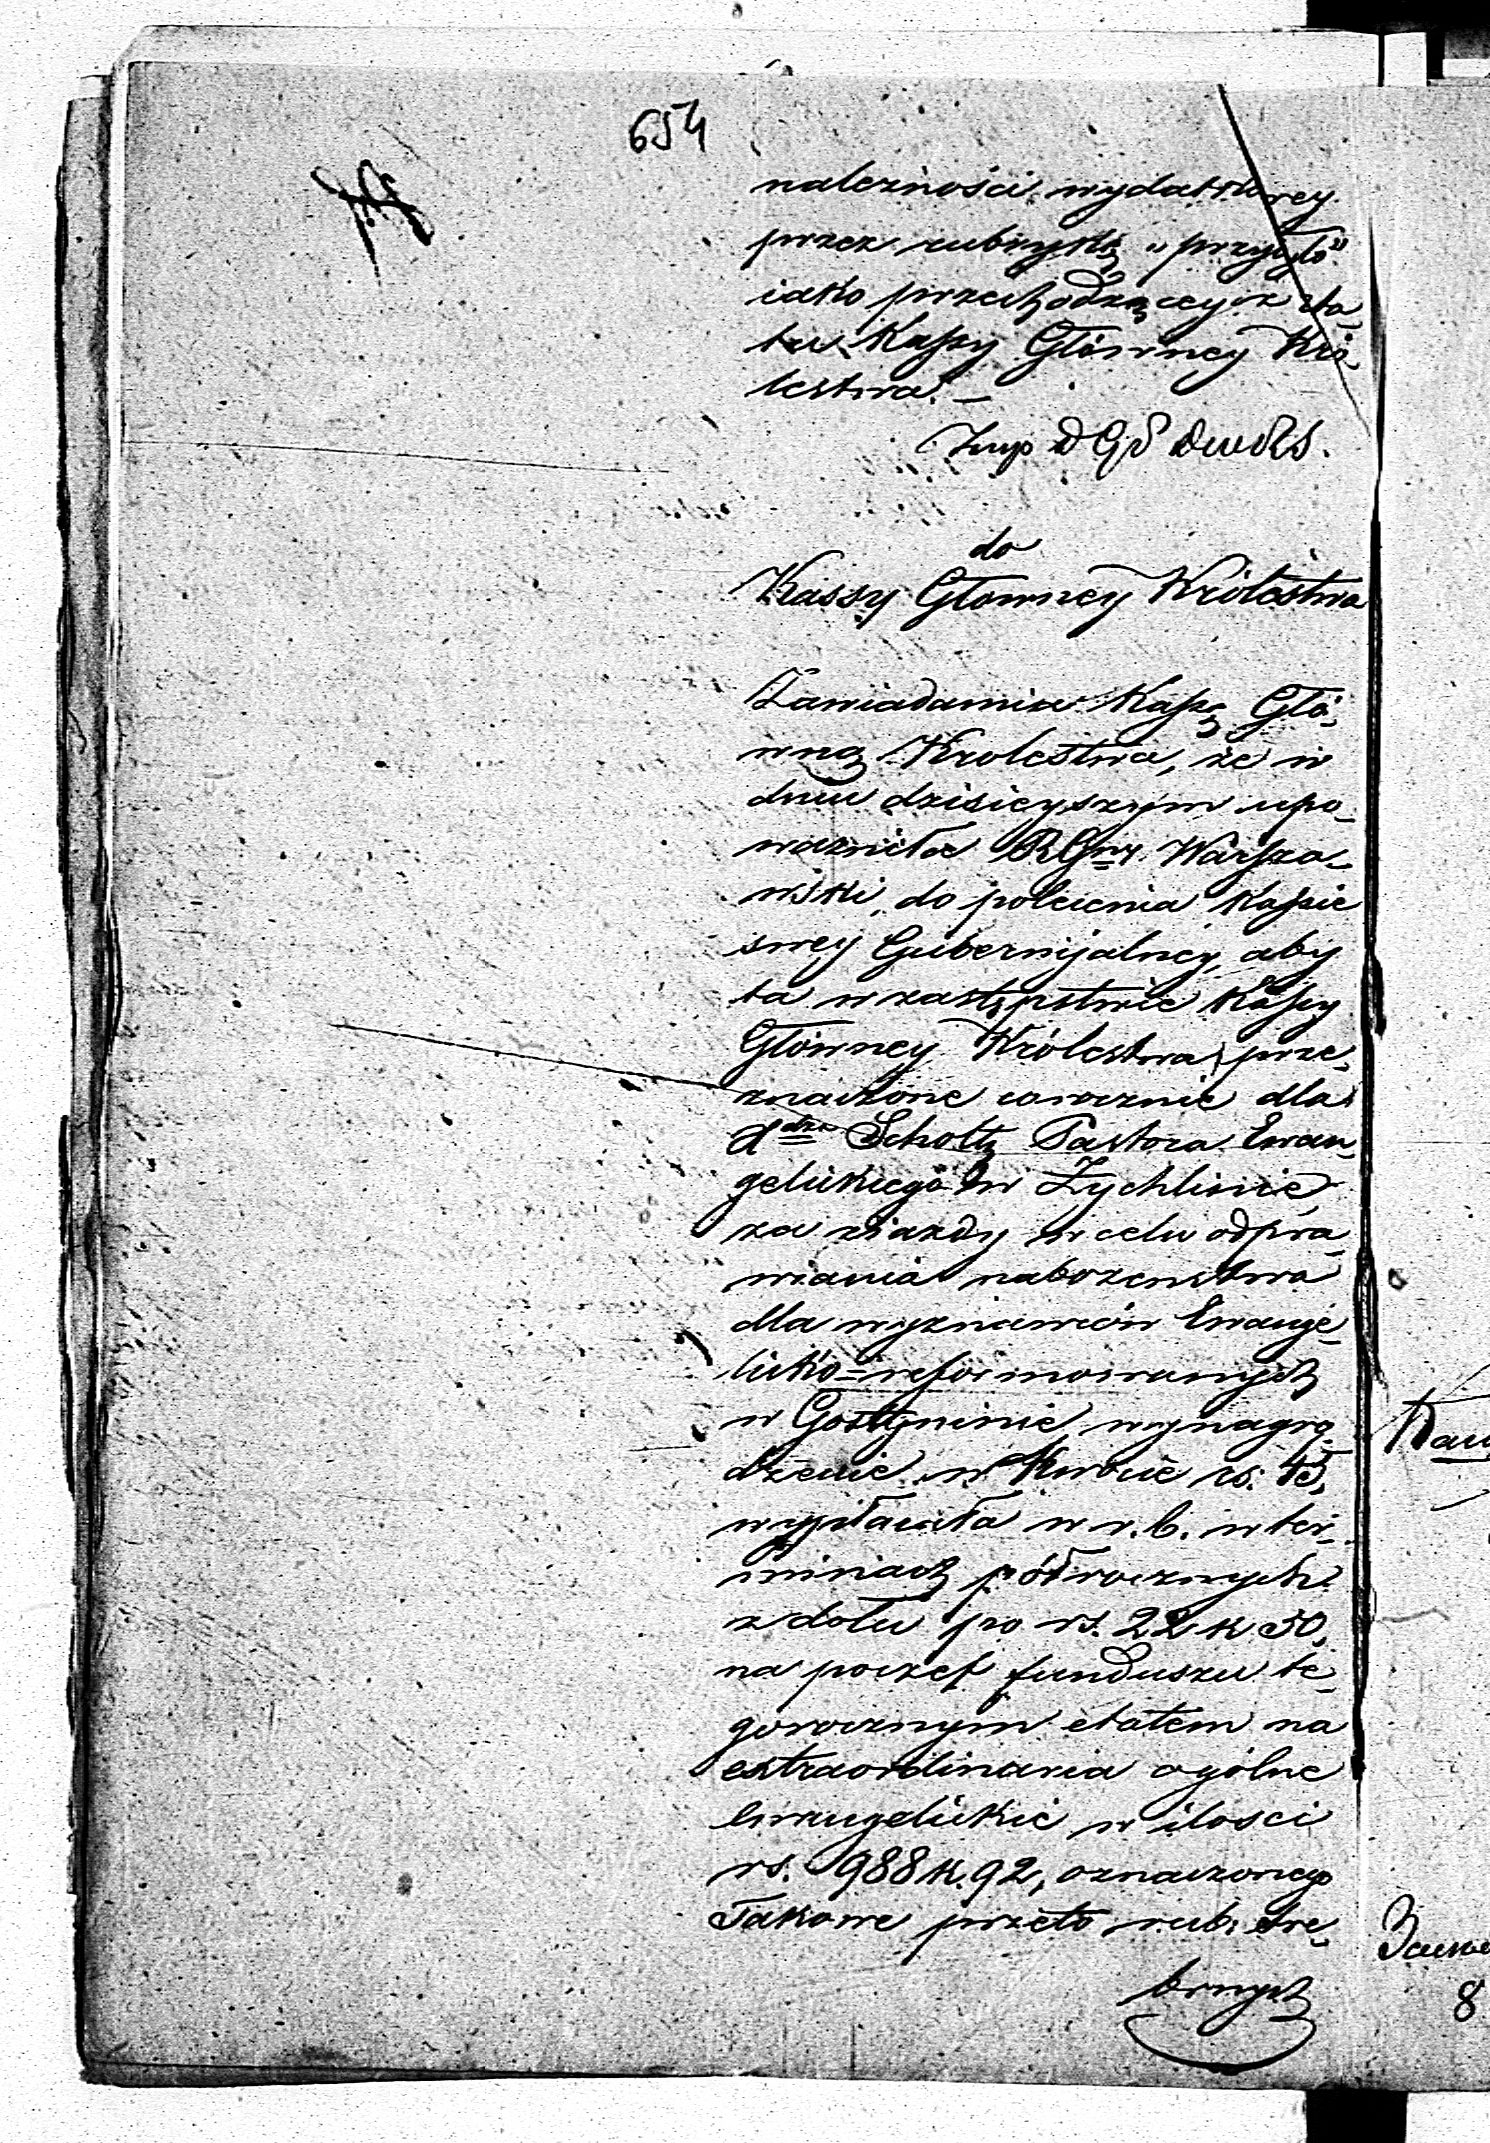 654
należności wydatkowey
przez rubrykę „przybyło”
iako przechodzącey z Ata
tu Kassy Główney Kró
lestwa. —
do
Kassy Głowney Królestwa
Zawiadamia Kassę Głó
wną Krolestwa, że w
dniu dzisieyszym upo
ważniła RGny. Warsza
wski, do polecenia Kassie
swey Gubernijalney, aby
ta w zastępstwie Kassy
Główney Królestwa, prze
znaczone corocznie dla
Xdza Scholtz Pastora Ewan
gelickiego w Żychlinie
za ziazdy w celu odpra
wiania nabozenstwa
dla wyznawców Ewange
licko-reformowanych
w Gostyninie wynagro
dzenie w kwocie rs. 45,
wypłacała w r. b. w ter
minach półrocznych
z dołu po rs. 22 k 50,
na poczet funduszu te
gorocznym etatem na
extraordinaria ogólne
Ewangelickie w ilosci
rs. 988 k. 92, oznaczonego
Takowe przeto rub. sre
brnych
8